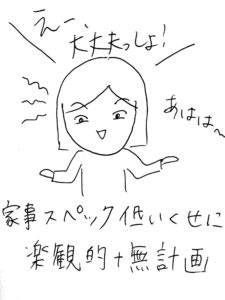 えー、
大丈夫っしょ!
あはは〜
家事スペック低いくせに
楽観的+無計画